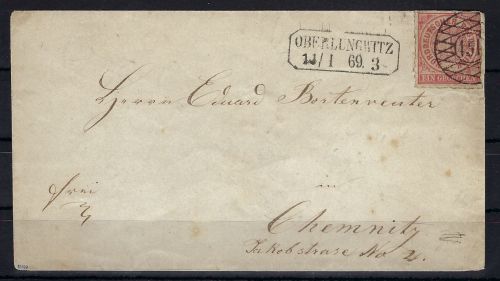 OBERLUNGWITZ
11/1 69. 3
EIN GROSCHEN
Herrn Eduard Bortenreuter
frei
in
Chemnitz
Jakobstrase No 2.